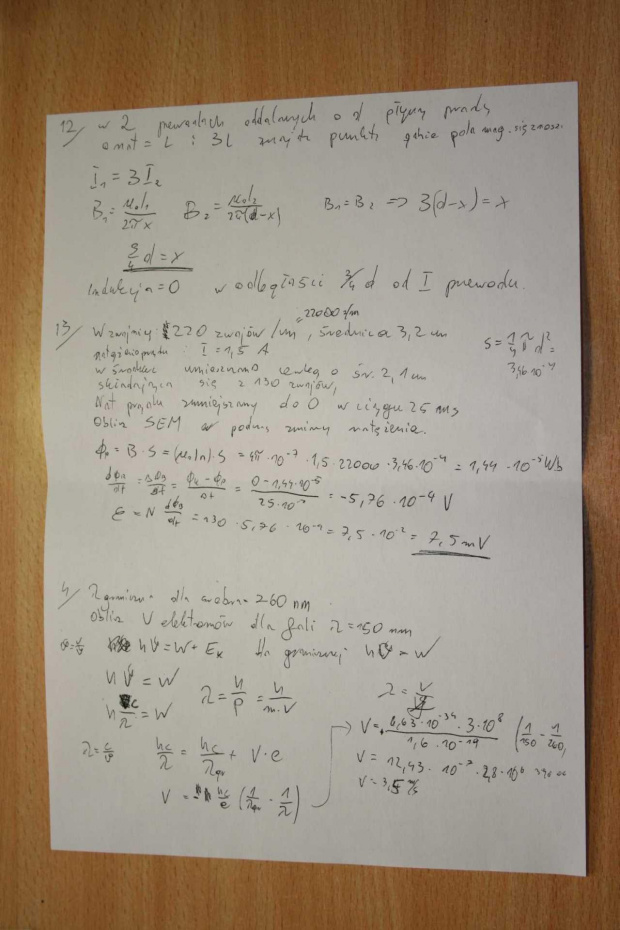 12/ w 2 przewodach oddalonych o d płyną prądy
o nat = I i 3I znajdź punkty gdzie pola mag. się znosz.
I₁ = 3I₂
B₁ = μ₀I₁/2πx B₂ = μ₀I₂/2π(d-x) B₁ = B₂ => 3(d-x) = x
3/4 d = x
Indukcja = 0 w odległości 3/4 d od I przewodu.
= 22000 z/m
13/ W zwojnicy 220 zwojów /cm, średnica 3,2 cm
natężenie prądu : I = 1,5 A
S = 1/4 π d² =
3,46·10⁻⁴
w środku umieszczono cewkę o śr. 2,1 cm
składających się z 130 zwojów,
Nat prądu zmniejszamy do 0 w ciągu 25 ms
Oblicz SEM w podczas zmiany natężenia.
= B · S = (μ₀In) · S = 4π · 10⁻⁷ · 1,5 · 22000 · 3,46·10⁻⁴ = 1,44 · 10⁻⁵ Wb
= (0 - 1,44·10⁻⁵)/25·10⁻³ = -5,76 · 10⁻⁴ V
ε = N = 130 · 5,76 · 10⁻⁴ = 7,5 · 10⁻² = 7,5 mV
4/ λ graniczna dla srebra = 260 nm
Oblicz V elektronów dla fali λ = 150 nm
hν = W + Eₖ dla granicznej hν = W
hν = W λ = h/p = h/m·V
hc/λ = W
λ = c/ν hc/λ = hc/λgr + V·e
V = hc/e (1/λgr - 1/λ)
V = 6,63·10⁻³⁴ · 3·10⁸/1,6·10⁻¹⁹ (1/150 - 1/260)
V = 12,43 · 10⁻⁷ · 2,8 · 10⁶
V = 3,5 m/s